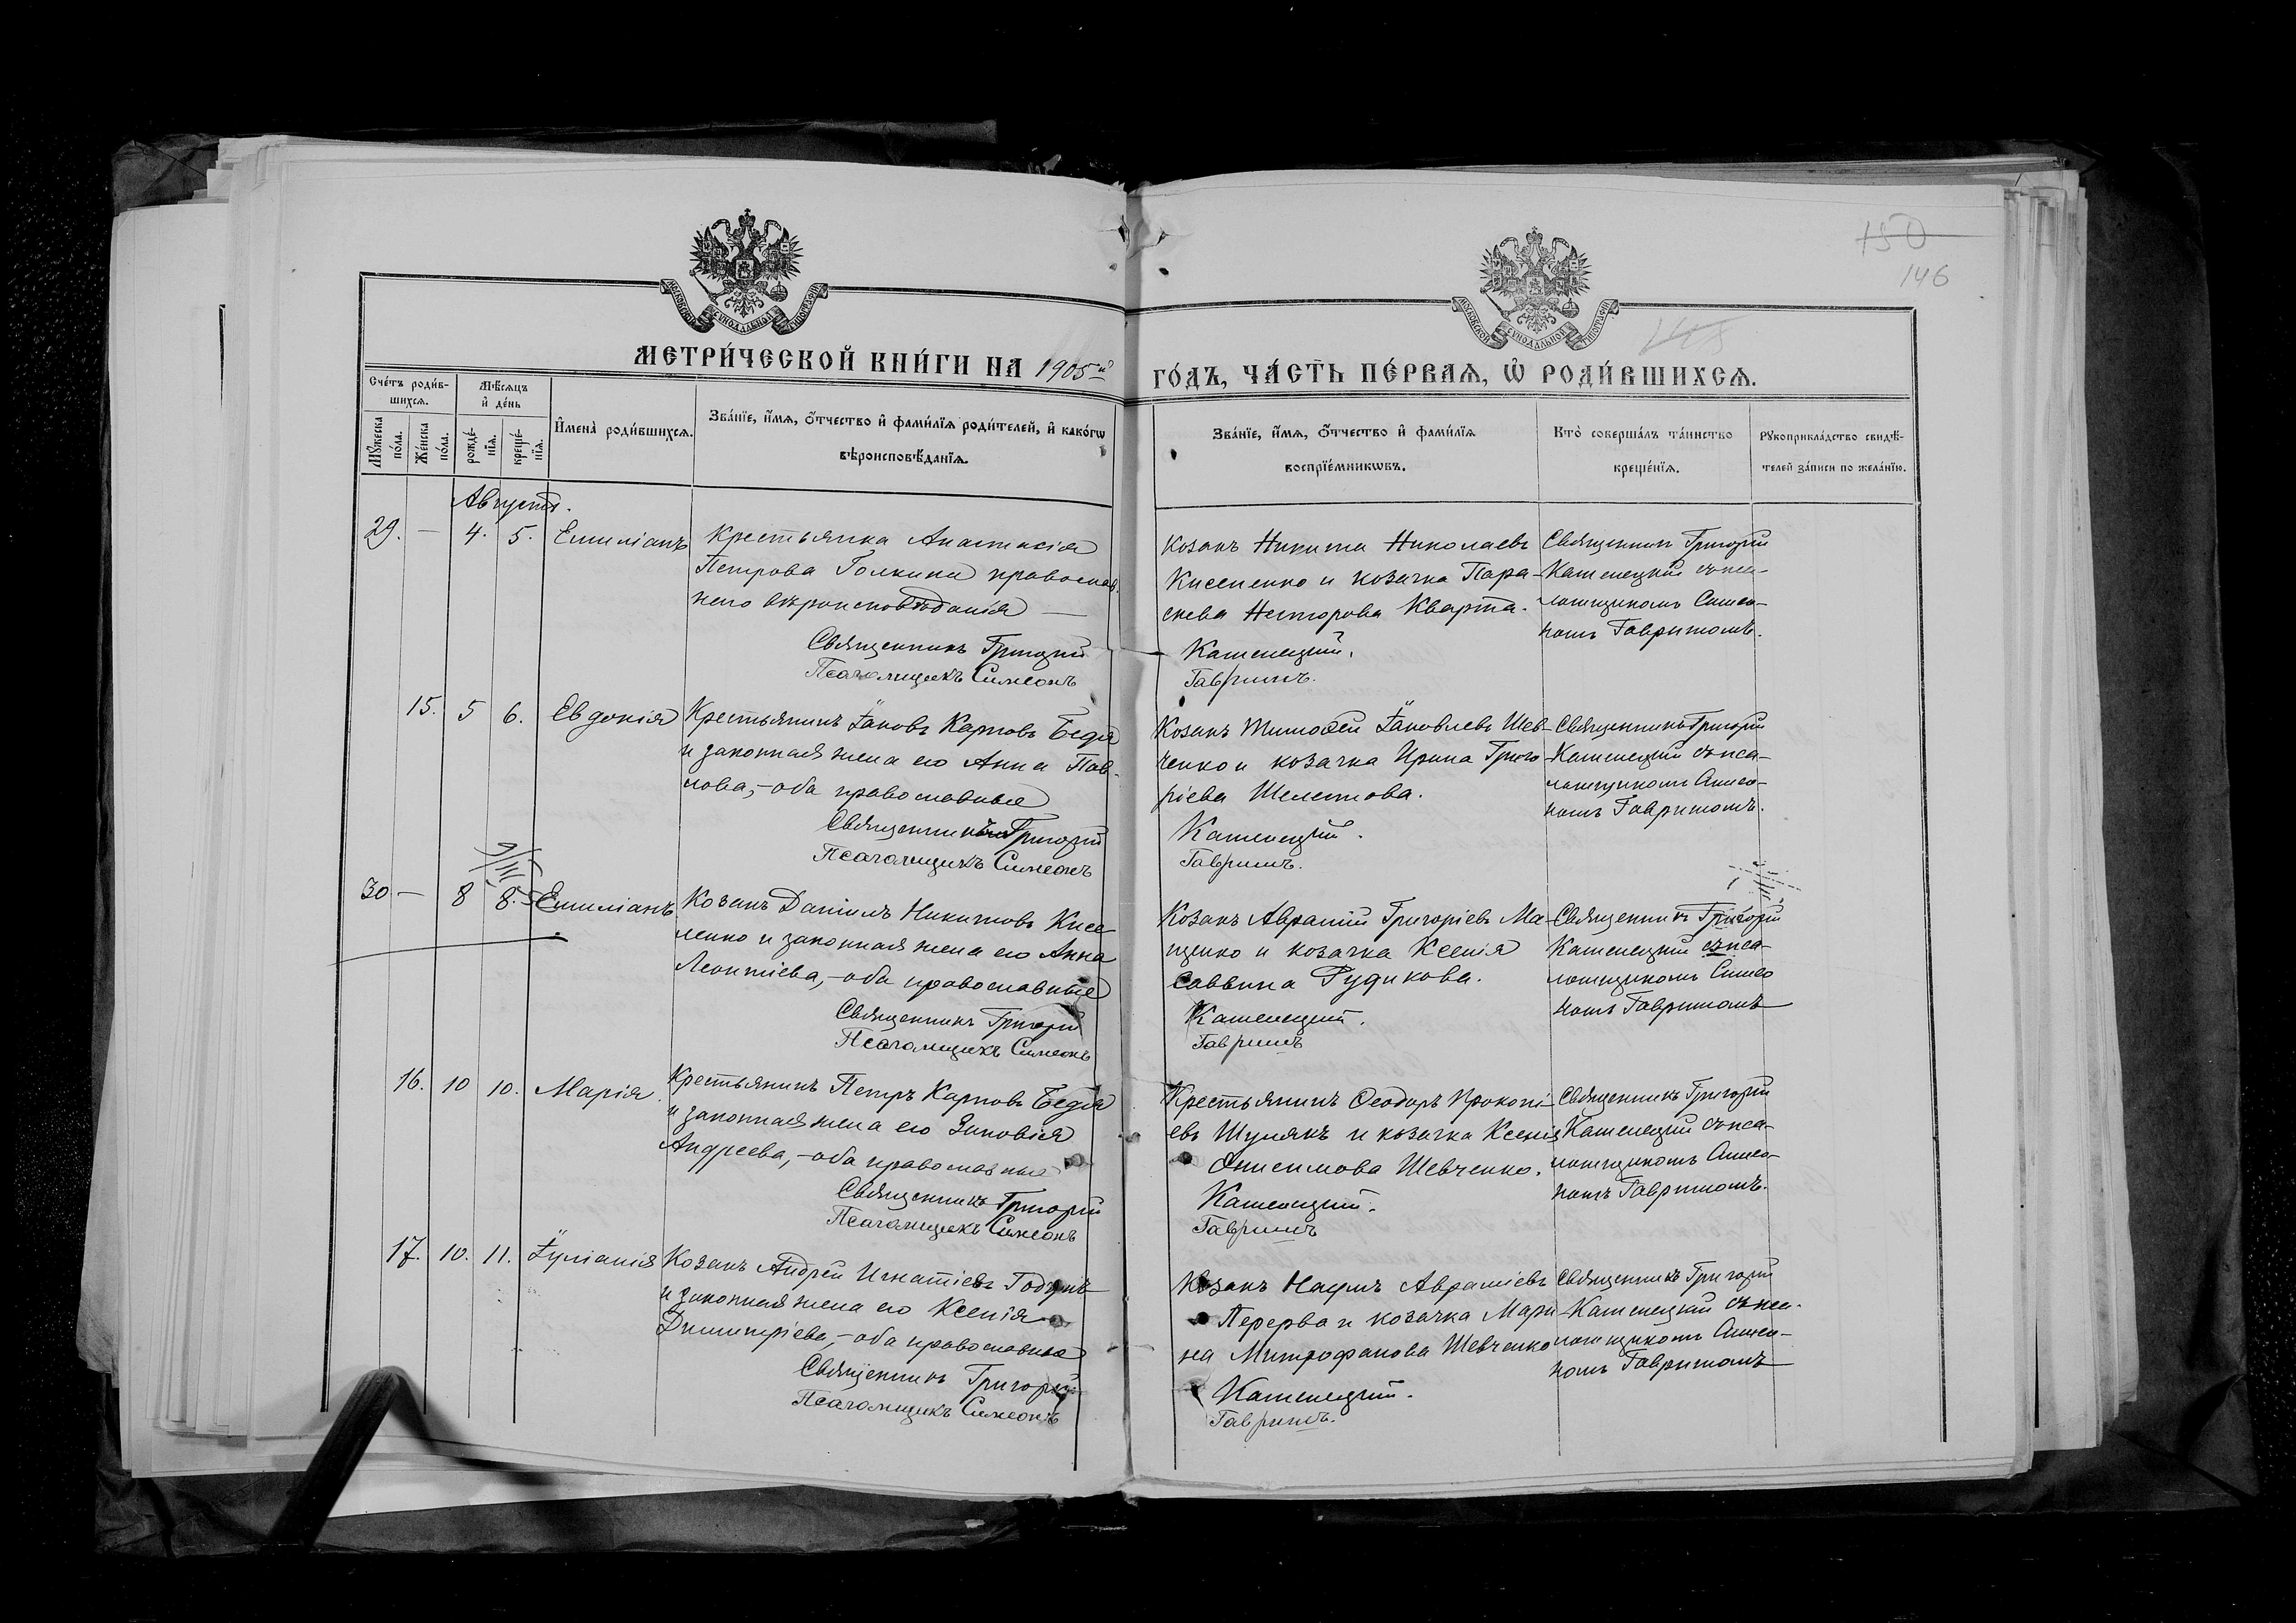 150
146
МОСКОВСКОЙ СѴНОДАЛЬНОЙ ТИПОГРАФІИ
МОСКОВСКОЙ СѴНОДАЛЬНОЙ ТИПОГРАФІИ
МЕТРИ́ЧЕСКОЙ КНИ́ГИ НА 1905й
ГО́ДЪ, ЧА́СТЬ ПЕ́РВАѦ, Ѡ҆ РОДИ́ВШИХСѦ.
Сче́тъ роди́в-
шихсѧ.
Мѣ́сѧцъ
и҆ де́нь
Мꙋ́жеска
по́ла.
Же́нска
по́ла.
рожде́-
нїѧ.
креще́-
нїѧ.
И҆мена̀ роди́вшихсѧ.
Зва́нїе, и҆́мѧ, ѻ҆́тчество и҆ фами́лїѧ роди́телей, и҆ како́гѡ
вѣроисповѣ́данїѧ.
Зва́нїе, и҆́мѧ, ѻ҆́тчество и҆ фами́лїѧ
воспрїе́мникѡвъ.
Кто̀ соверша́лъ та́инство
креще́нїѧ.
Рꙋкоприкла́дство свидѣ́-
телей за́писи по жела́нїю.
Августъ.
29. — 4. 5. Емиліанъ
Крестьянка Анастасія
Петрова Голкина православ.
наго вѣроисповѣданія —
Священникъ Григорій
Псаломщикъ Симеонъ
Козакъ Никита Николаевъ
Киселенко и козачка Пара-
скева Несторова Кварта.
Каменецкій.
Гавришъ.
Священникъ Григорій
Каменецкій съ пса-
ломщикомъ Симео-
номъ Гавришомъ.
15. 5 6. Евдокія
Крестьянинъ Іаковъ Карповъ Бедя
и законная жена его Анна Пав-
лова,-оба православные
Священникъ Григорій
Псаломщикъ Симеонъ
Козакъ Тимоѳей Іаковлевъ Шев-
ченко и козачка Ирина Григо
ріева Шелестова.
Каменецкій.
Гавришъ.
Священникъ Григорій
Каменецкій съ пса-
ломщикомъ Симео-
номъ Гавришомъ.
30 — 8 8. Емиліанъ
Козакъ Даніилъ Никитовъ Кисе-
ленко и законная жена его Анна
Леонтіева,-оба православные
Священникъ Григорій
Псаломщикъ Симеонъ
Козакъ Аврамій Григоріевъ Ма-
щенко и козачка Ксенія
Саввина Рудикова.
Каменецкій.
Гавришъ
Священникъ Григорій
Каменецкій съ пса-
ломщикомъ Симео
номъ Гавришомъ
16. 10 10. Марія.
Крестьянинъ Петръ Карповъ Бедя
и законная жена его Зиновія
Андреева,-оба православные
Священникъ Григорій
Псаломщикъ Симеонъ
Крестьянинъ Ѳеодоръ Прокопі-
евъ Шулякъ и козачка Ксенія
Онисимова Шевченко.
Каменецкій.
Гавришъ
Священникъ Григорій
Каменецкій съ пса-
ломщикомъ Симео-
номъ Гавришомъ.
17. 10. 11. Іуліанія
Козакъ Андрей Игнатіевъ Годунъ
и законная жена его Ксенія
Димитріева,-оба православные
Священникъ Григорій
Псаломщикъ Симеонъ
Козакъ Наумъ Авраміевъ
Перерва и козачка Мари-
на Митрофанова Шевченко
Каменецкій.
Гавришъ.
Священникъ Григорій
Каменецкій съ пса-
ломщикомъ Симео-
номъ Гавришомъ